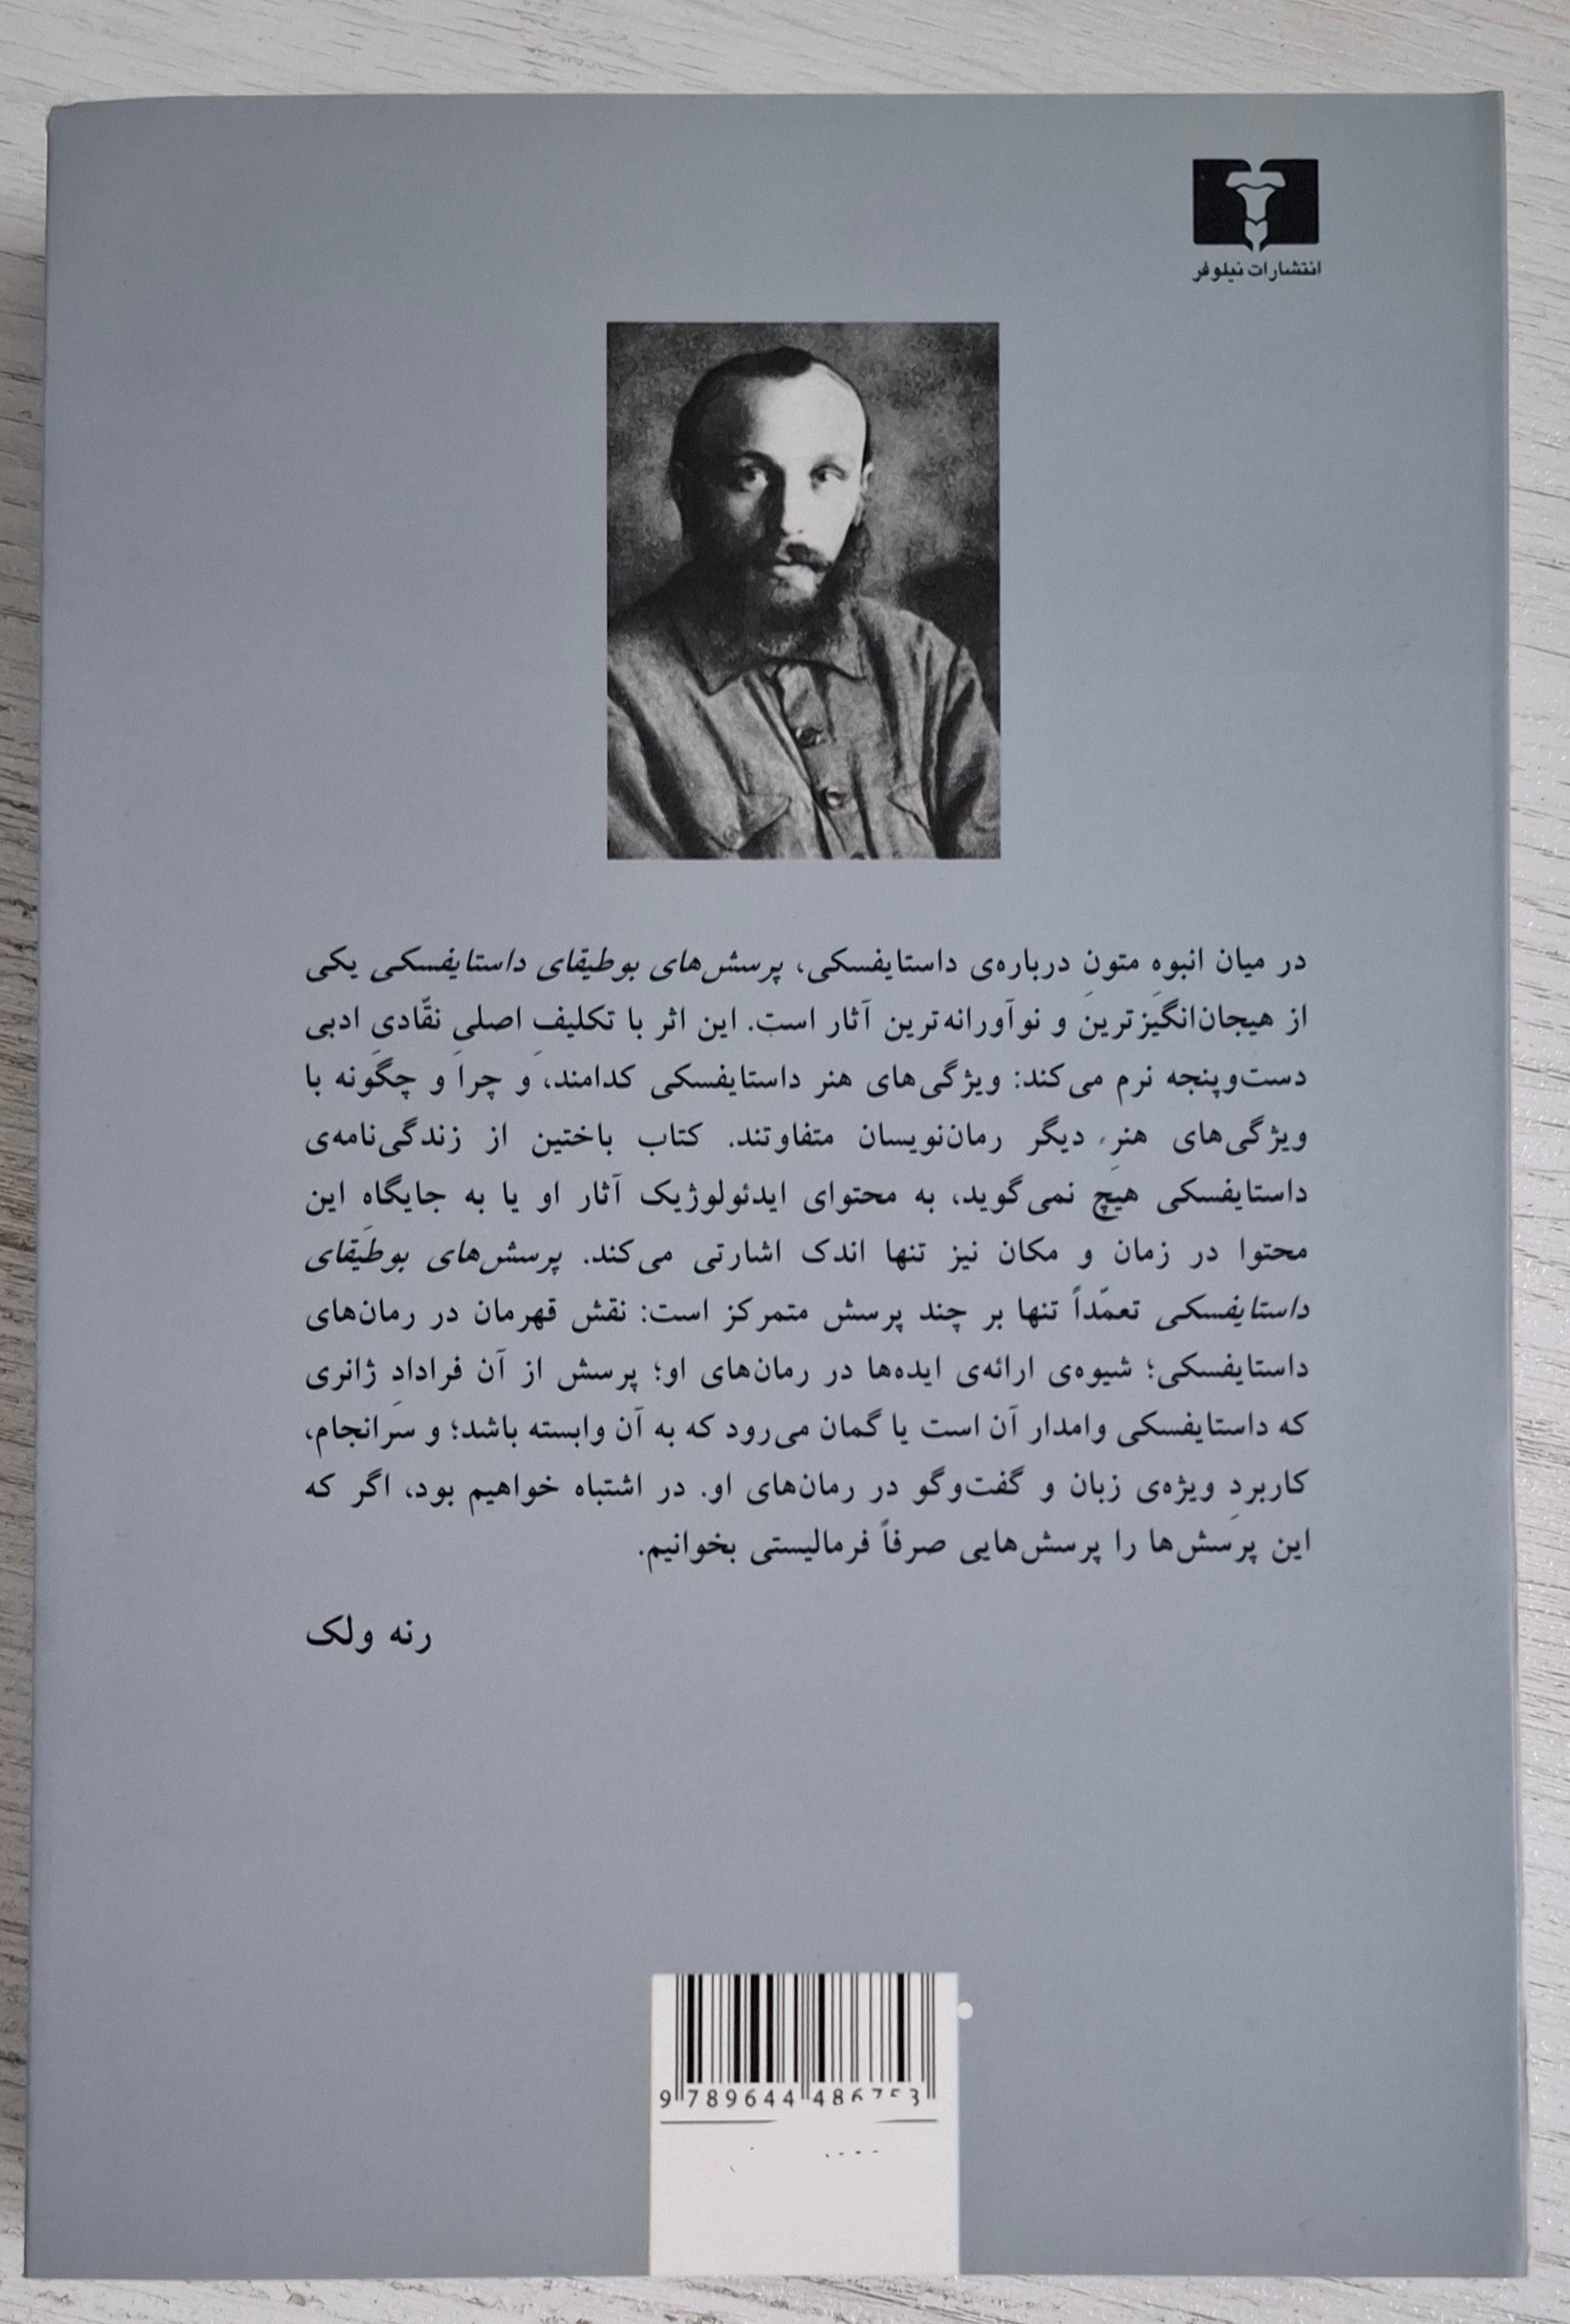 انتشارات نیلوفر
در میان انبوهِ متونِ درباره‌ی داستایفسکی، پرسش‌های بوطیقای داستایفسکی یکی
از هیجان‌انگیزترین و نوآورانه‌ترین آثار است. این اثر با تکلیفِ اصلیِ نقّادیِ ادبی
دست‌وپنجه نرم می‌کند: ویژگی‌های هنر داستایفسکی کدامند، و چرا و چگونه با
ویژگی‌های هنرِ دیگر رمان‌نویسان متفاوتند. کتاب باختین از زندگی‌نامه‌ی
داستایفسکی هیچ نمی‌گوید، به محتوای ایدئولوژیک آثار او یا به جایگاه این
محتوا در زمان و مکان نیز تنها اندک اشارتی می‌کند. پرسش‌های بوطیقای
داستایفسکی تعمّداً تنها بر چند پرسش متمرکز است: نقش قهرمان در رمان‌های
داستایفسکی؛ شیوه‌ی ارائه‌ی ایده‌ها در رمان‌های او؛ پرسش از آن فرادادِ ژانری
که داستایفسکی وامدار آن است یا گمان می‌رود که به آن وابسته باشد؛ و سرانجام،
کاربردِ ویژه‌ی زبان و گفت‌وگو در رمان‌های او. در اشتباه خواهیم بود، اگر که
این پرسش‌ها را پرسش‌هایی صرفاً فرمالیستی بخوانیم.
رنه ولک
9 789644 486753